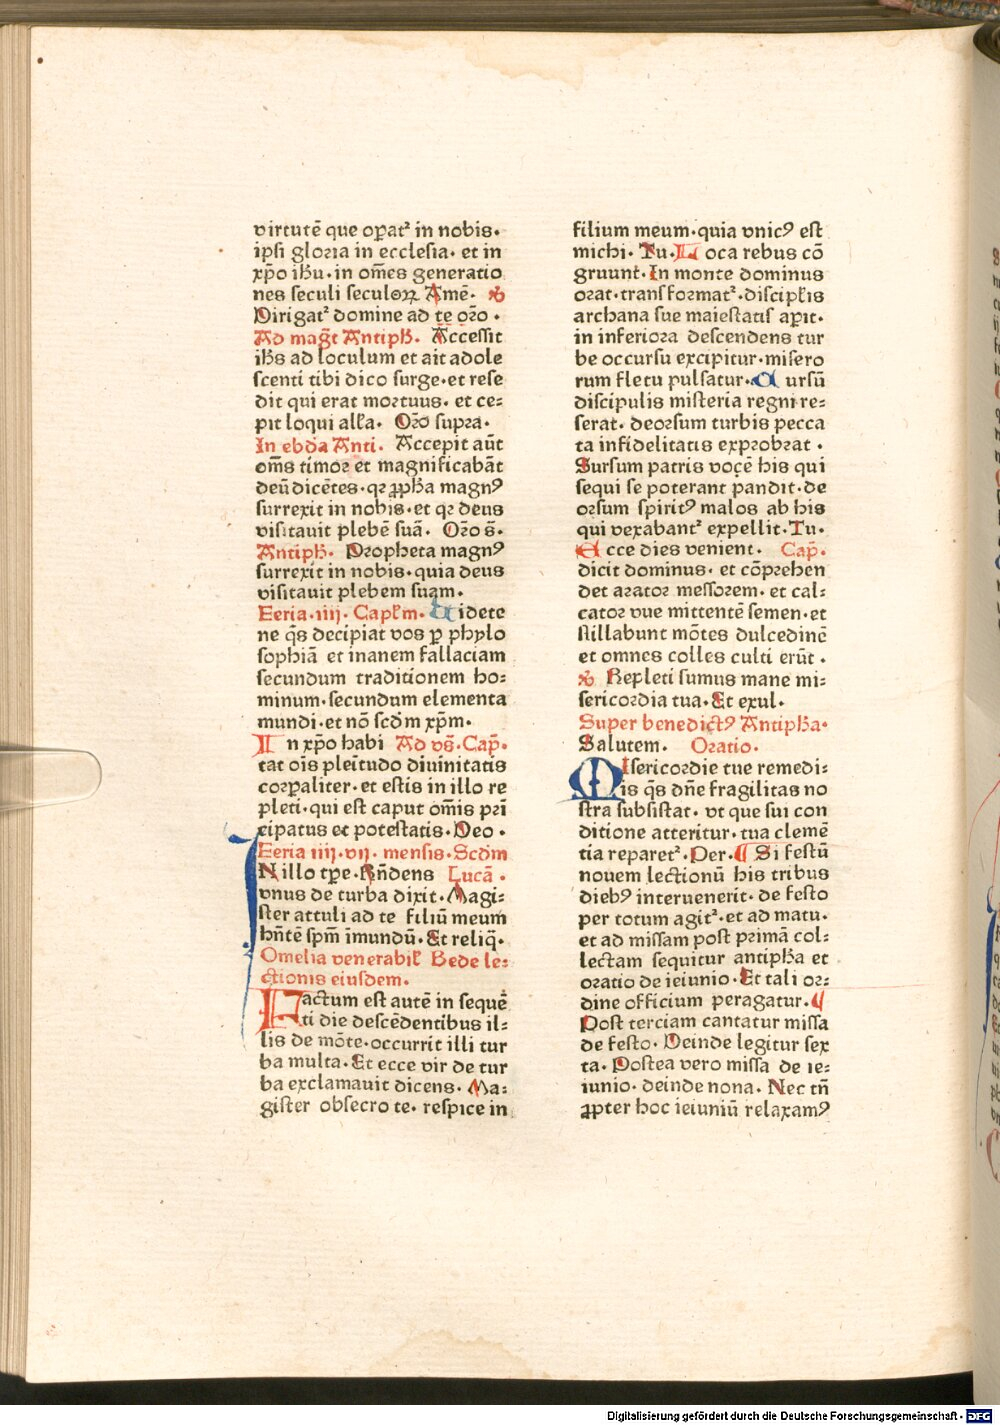 virtutē que op̄atᷣ in nobis·
ipsi gloria in ecclesia· et in
xp̄o ihū· in om̄es generatio
nes seculi seculoꝝ Amē· ℟
Dirigatᷣ domine ad te or̄o·
Ad mag̃t Antiph̄· Accessit
ih̄s ad loculum et ait adole
scenti tibi dico surge· et rese
dit qui erat mortuus· et ce⸗
pit loqui all̄a· Or̄o supra·
In ebd̄a Anti· Accepit aūt
om̄s timor et magnificabāt
deū dicētes· qꝛ ꝓph̄a magnꝰ
surrexit in nobis· et qꝛ deus
visitauit plebē suā· Or̄o s̄·
Antiph̄· Propheta magnꝰ
surrexit in nobis· quia deus
visitauit plebem suam·
Feria·iiij· Capl̄m· Uidete
ne q̄s decipiat vos ꝑ phylo
sophiā et inanem fallaciam
secundum traditionem ho⸗
minum· secundum elementa
mundi· et nō scd̄m xp̄m·
In xp̄o habi Ad vs̄· Cap̄·
tat oīs plēitudo diuinitatis
corꝑaliter· et estis in illo re
pleti· qui est caput om̄is prī
cipatus et potestatis· Deo·
Feria iiij·vij· mensis· Scd̄m
IN illo tp̄e· Rn̄dens Lucā·
vnus de turba dixit· Magi⸗
ster attuli ad te filiū meum
hn̄tē sp̄m īmundū· Et reliq̄·
Omelia venerabil̄ Bede le⸗
ctionis eiusdem·
Factum est autē in sequē
ti die descēdentibus il⸗
lis de mōte· occurrit illi tur
ba multa· Et ecce vir de tur
ba exclamauit dicens· Ma⸗
gister obsecro te· respice in
filium meum· quia vnicꝰ est
michi· Tu· Loca rebus cō
gruunt· In monte dominus
orat· transformatᷣ· discipl̄is
archana sue maiestatis aꝑit·
in inferiora descendens tur
be occursu excipitur· misero
rum fletu pulsatur· Cursū
discipulis misteria regni re⸗
serat· deorsum turbis pecca
ta infidelitatis exprobrat·
Sursum patris vocē his qui
sequi se poterant pandit· de
orsum spiritꝰ malos ab his
qui vexabantᷣ expellit· Tu·
Ecce dies venient· Cap̄·
dicit dominus· et cōprehen
det arator messorem· et cal⸗
cator vue mittentē semen· et
stillabunt mōtes dulcedinē
et omnes colles culti erūt·
℟ Repleti sumus mane mi⸗
sericordia tua· Et exul·
Super benedictꝰ Antiph̄a·
Salutem· Oratio·
Misericordie tue remedi⸗
is q̄s dn̄e fragilitas no
stra subsistat· vt que sui con
ditione atteritur· tua clemē
tia reparetᷣ· Per· ¶ Si festū
nouem lectionū his tribus
diebꝰ interuenerit· de festo
per totum agitᷣ· et ad matu·
et ad missam post primā col⸗
lectam sequitur antiph̄a et
oratio de ieiunio· Et tali or⸗
dine officium peragatur· ¶
Post terciam cantatur missa
de festo· Deinde legitur sex
ta· Postea vero missa de ie⸗
iunio· deinde nona· Nec tn̄
ꝓpter hoc ieiuniū relaxamꝰ
Digitalisierung gefördert durch die Deutsche Forschungsgemeinschaft - DFG